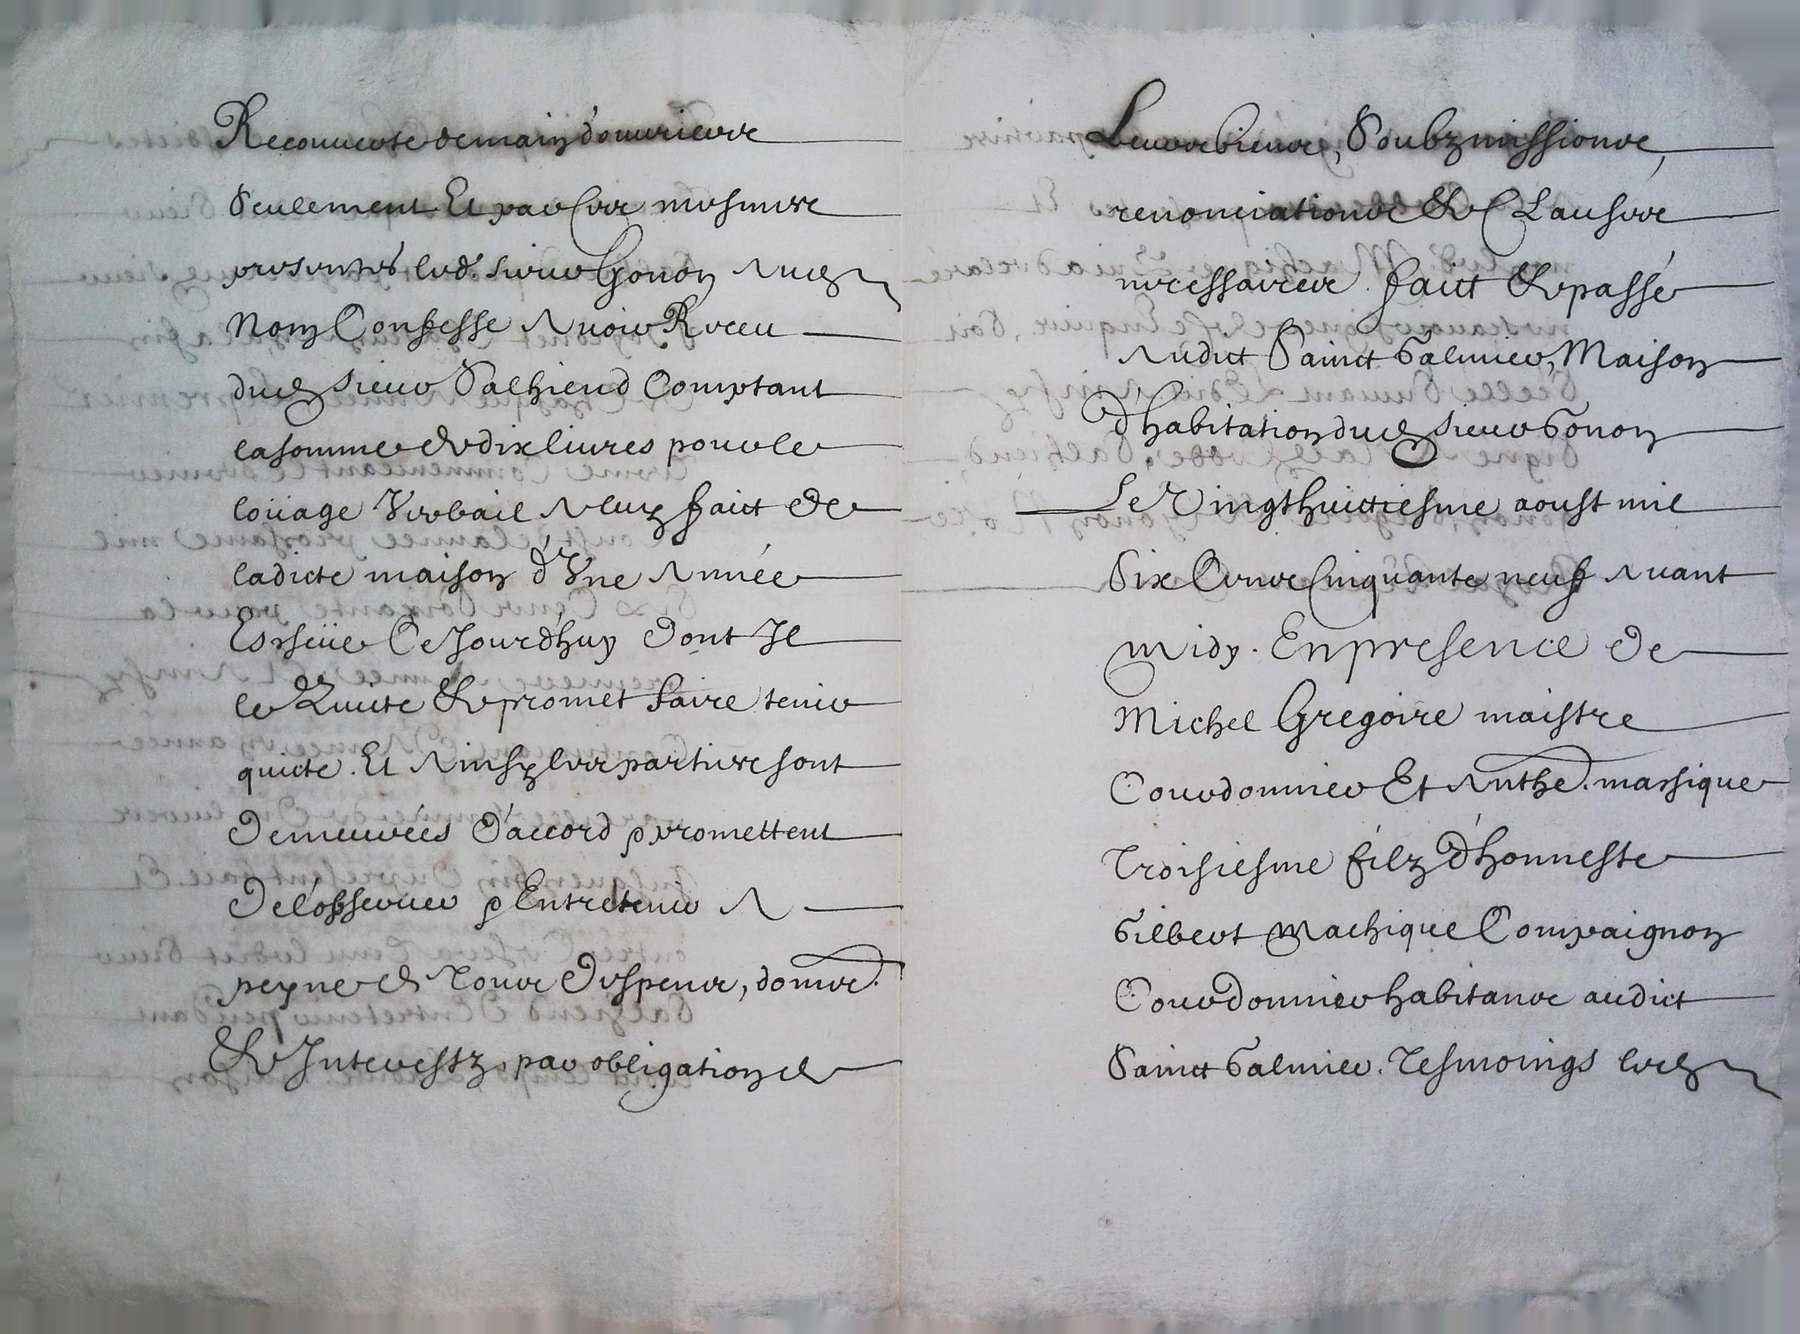 Recouverte de main d'ouvriers
Seulement Et par Ces mesmes
presentes led. sieur Gonon aud.
Nom Confesse Avoir Receu
dud. sieur Palhiend Comptant
la somme de dix livres pour le
loüage Verbail a luy faict de
ladicte maison d'Une Année
Escheüe Ce Jourd'huy dont Il
le Quicte & promet faire tenir
quicte. Et Ainsy les parties sont
Demeurées D'accord promettent
De l'observer & Entretenir A
peyne de Tous Despens, domes.
& Interestz, par obligation de
Leurs biens, Soubzmissions,
renonciations & Clauses
necessaires. faict & passé
Audict Sainct Galmier, Maison
D'habitation dud. sieur Gonon
Le Vingthuictiesme aoust mil
Six Cens Cinquante neuf Avant
midy. En presence de
Michel Gregoire maistre
Courdonnier Et Anthe. massique
Troisiesme filz D'honneste
Gilbert Machique Compaignon
Courdonnier habitans audict
Sainct Galmier. Tesmoings led.